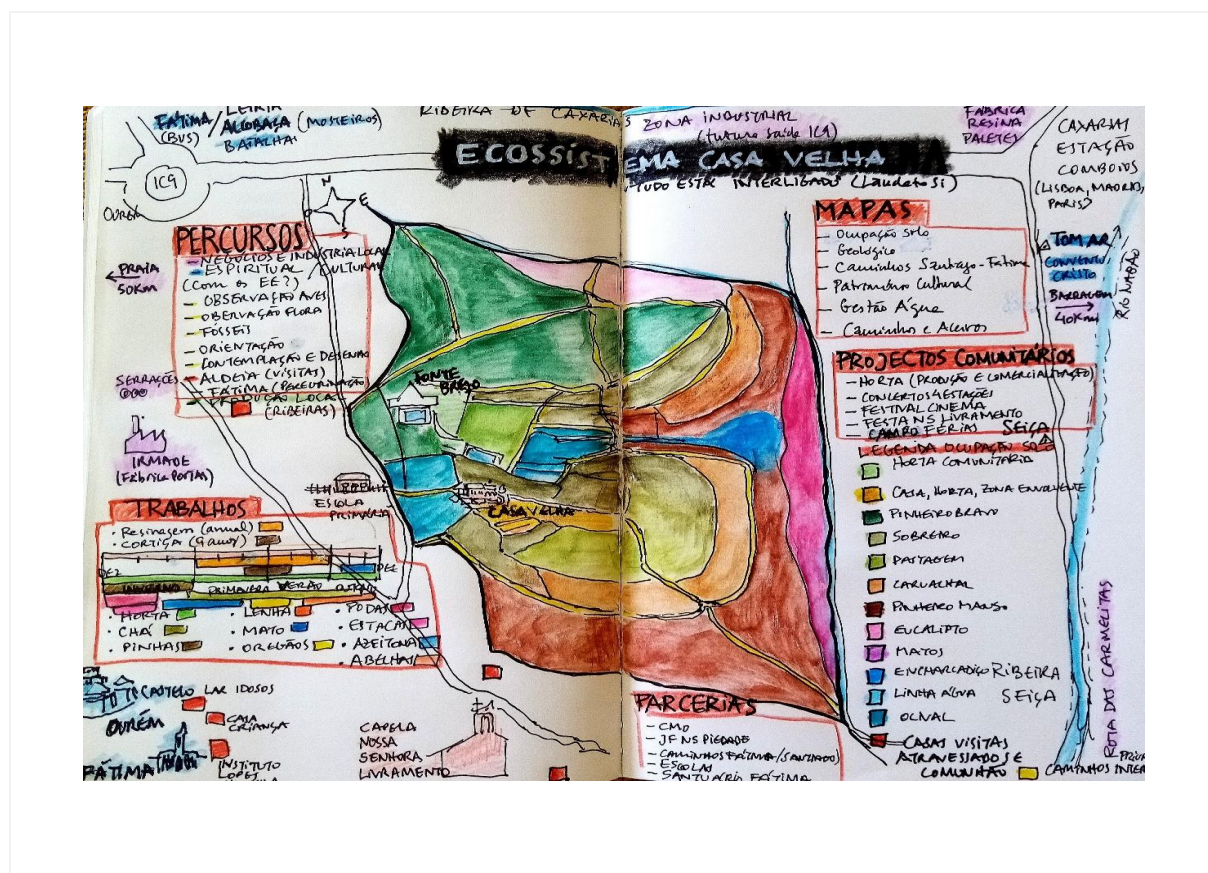 FÁTIMA/
(BUS)
LEIRIA
ALCOBAÇA (MOSTEIROS)
BATALHA
RIBEIRA DE CAXARIAS
ZONA INDUSTRIAL
(futura saída IC9)
FÁBRICA
RESINA
PALETES
CAXARIAS
ESTAÇÃO
COMBOIOS
(LISBOA, MADRID,
PARIS)
ECOSSISTEMA CASA VELHA
TUDO ESTÁ INTERLIGADO (Laudato Si)
IC9
OURÉM
N
E
S
O
PERCURSOS
- NEGÓCIOS E INDÚSTRIA LOCAL
- ESPIRITUAL / CULTURAL
(com os EE?)
- OBSERVAÇÃO AVES
- OBERVAÇÃO FLORA
- FÓSSEIS
- ORIENTAÇÃO
- CONTEMPLAÇÃO E DESENHO
- ALDEIA (VISITAS)
- FÁTIMA (PEREGRINAÇÃO
LOCAL
(RIBEIRAS)
PRAIA
50KM
SERRAÇÕES
IRMADE
(Fábrica PORTAS)
MAPAS
- Ocupação solo
- Geológico
- Caminhos Santiago-Fátima
- Património Cultural
- Gestão Água
- Caminhos e Aceiros
TOMAR
CONVENTO
CRISTO
BARRAGEM
40Km
RIO NABÃO
PROJECTOS COMUNITÁRIOS
- HORTA (PRODUÇÃO E COMERCIALIZAÇÃO)
- CONCERTOS 4 ESTAÇÕES
- FESTIVAL CINEMA
- FESTA NS LIVRAMENTO
- CAMPO FÉRIAS
SEIÇA
LEGENDA OCUPAÇÃO SOLO
HORTA COMUNITÁRIA
CASA, HORTA, ZONA ENVOLVENTE
PINHEIRO BRAVO
SOBREIRO
PASTAGEM
CARVALHAL
PINHEIRO MANSO
EUCALIPTO
MATOS
ENCHARCADIÇO
LINHA ÁGUA
OLIVAL
RIBEIRA
SEIÇA
ROTA DAS CARMELITAS
FONTE
BREJO
CASA VELHA
ESCOLA
PRIMÁRIA
TRABALHOS
· Resinagem (anual)
· CORTIÇA (9 anos)
DEZ
DEZ
INVERNO
PRIMAVERA
VERÃO
OUTONO
· HORTA
· LENHA
· PODAS
· CHÁ
· MATO
· ESTACAS
· PINHAS
· OREGÃOS
· AZEITONA
· ABELHAS
CASTELO
OURÉM
FÁTIMA
LAR IDOSOS
CASA
CRIANÇA
INSTITUTO
LOPES
CAPELA
NOSSA
SENHORA
LIVRAMENTO
PARCERIAS
- CMO
- JF NS PIEDADE
- CAMINHOS FÁTIMA/SANTIAGO
- ESCOLAS
- SANTUÁRIO FÁTIMA
CASAS VISITAS
ATRAVESSADOS E
COMUNHÃO
CAMINHOS